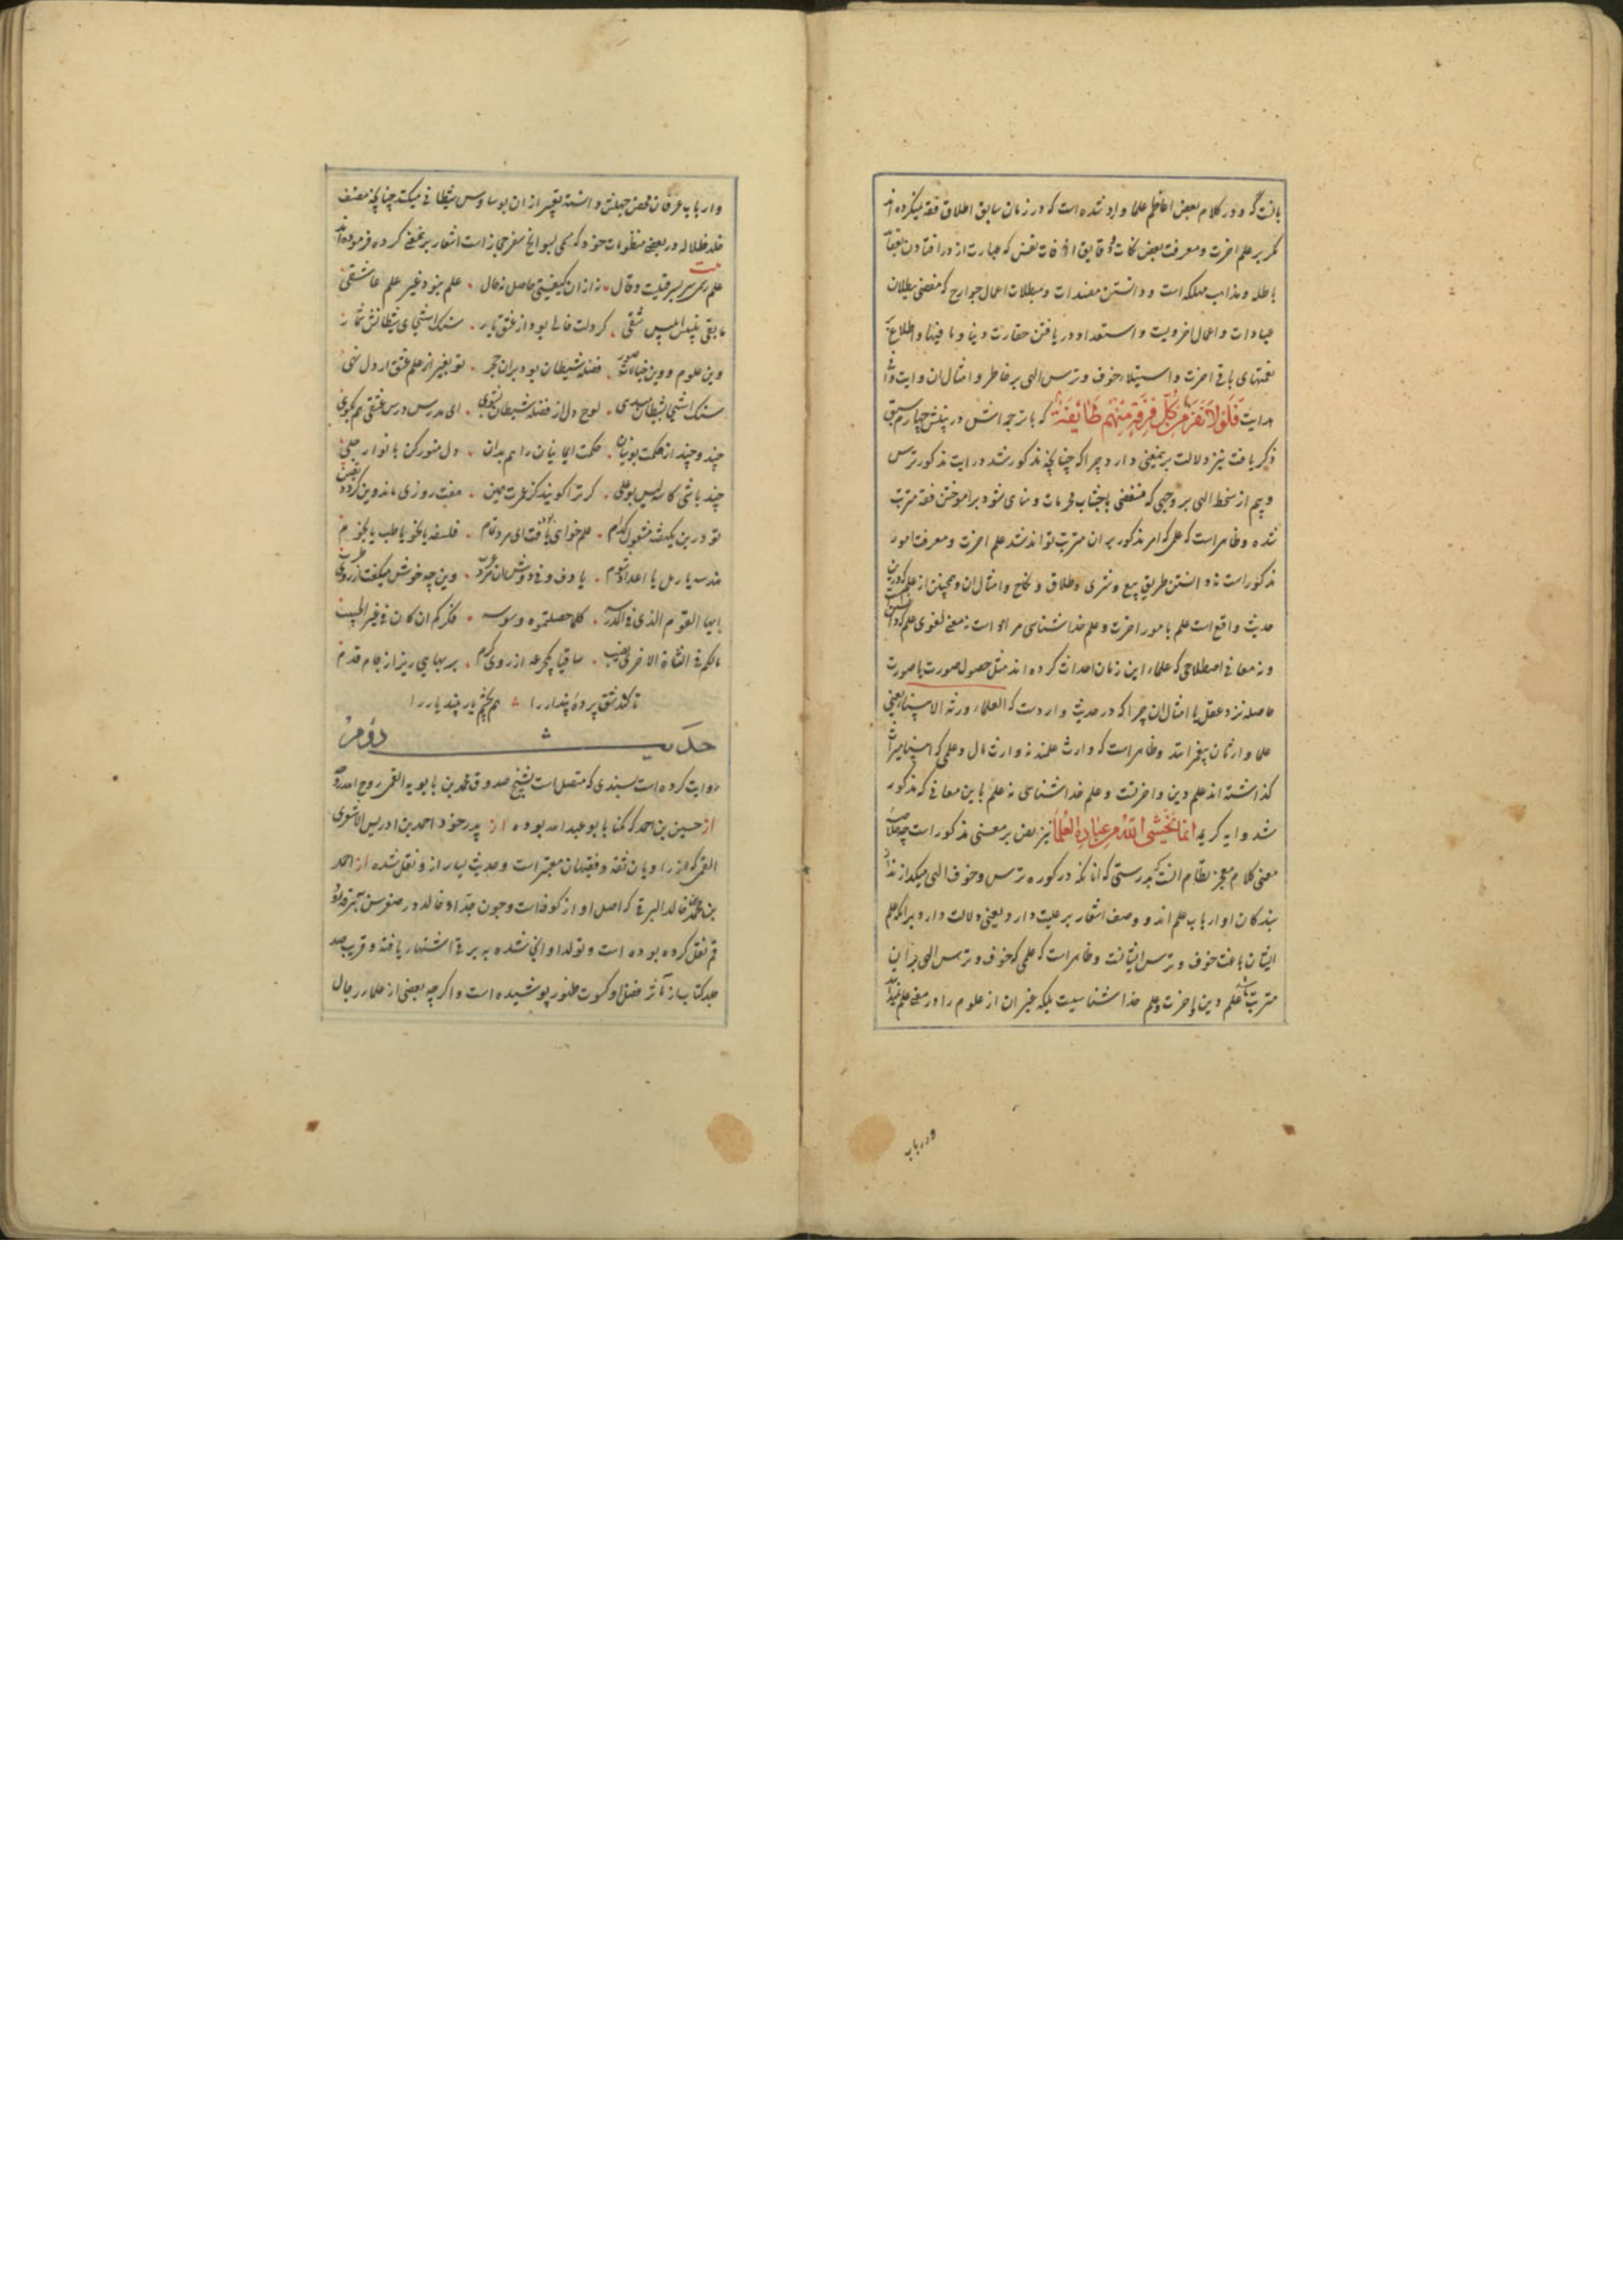 بانست که و در کلام بعض اعاظم علما وارد شده است که در زمان سابق اطلاق فقه میکرده اند
مگر بر علم اخرت و معرفت بعض نکات و دقایق افات نفس که عبارت از در افتادن بعقاید
باطله و مذاهب مهلکه است و دانستن مفسدات و مبطلات اعمال جوارح که مفضی ببطلان
عبادات و اعمال اخرویست و استعداد در یافتن حقارت دنیا و ما فیها و اطلاع
نعمتهای باقی اخرت و استیلاء خوف و ترس الهی بر خاطر و امثال ان و ایت وافی
هدایت فَلَوْلَا نَفَرَ مِنْ كُلِّ فِرْقَةٍ مِنْهُم طَائِفَةٌ که با ترجمه اش در پیش چهارم سبق
ذکر یافت نیز دلالت بر نمعنی دارد چرا که چنانچه مذکور شد در ایت مذکور ترس
و بیم از سخط الهی بر وجهی که مقتضی باجتناب محرمات و مناهی شود بر اموختن فقه مترتب
شده و ظاهر است که علمی که امر مذکور بر ان مترتب تواند شد علم اخرت و معرفت امور
مذکور است نه دانستن طریق بیع و شری و طلاق و نکاح و امثال ان و همچنین از علم که درین
حدیث واقع است علم بامور اخرت و علم خدا شناسی مراد است نه معنی لغوی علم که دانستن است
و نه معانی اصطلاحی که علماء این زمان احداث کرده اند مثل حصول صورت یا صورت
حاصله نزد عقل یا امثال ان چرا که در حدیث وارد است که العلماء ورثة الانبیاء یعنی
علما وارثان پیغمبرانند و ظاهر است که وارث علمند نه وارث مال و علمی که انبیا میراث
گذاشته اند علم دین و اخرتست و علم خدا شناسی نه علم باین معانی که مذکور
شد و ایه کریمه انما يَخْشَى اللّٰهَ مِنْ عِبَادِهِ العُلَمَاءُ نیز نص بر معنی مذکور است چه خلاصه
معنی کلام معجز نظام انست که بدرستی که انانکه در کوره ترس و خوف الهی میگدازند از
بندگان او ارباب علم اند و وصف اشعار بر علیت دارد یعنی دلالت دارد بر انکه علم
ایشان باعث خوف و ترس ایشانست و ظاهر است که علمی که خوف و ترس الهی بر این
مترتب باشد علم دین و اخرت و علم خدا شناسیست بلکه غیر ان از علوم را در معنی علم نمیدانند
در باب
و ارباب عرفان محض جهلش دانسته تعبیر از ان بوساوس شیطانی میکنند چنانچه مصنف
خلد ظلاله در بعض منظومات خود که مسمی بسوانح سفر حجاز است اشعار بر نمعنی کرده فرموده اند
بیت
علم رسمی سر بسر قیلست و قال نه از ان کیفیتی حاصل نه حال علم نبود غیر علم عاشقی
مابقی تلبیس ابلیس شقی گر دلت خالی بود از عشق یار سنگ استنجای شیطانش شمار
وین علوم و وین خیالات و صور فضله شیطان بود بران حجر تو بغیر از علم عشق ار دل نهی
سنگ استنجا بشیطان میدهی لوح دل از فضله شیطان بشوی ای مدرس درس عشقی هم بگوی
چند و چند از حکمت یونانیان حکمت ایمانیان را هم بدان دل منور کن بانوار جلی
چند باشی کاسه لیس بوعلی گر ترا گویند کز عمرت همین هفت روزی مانده وین گردد یقین
تو در ین یکهفته مشغول کدام علم خواهی گشت ای مرد تمام فلسفه یا نحو یا طب یا نجوم
هندسه یا رمل یا اعداد شوم با دف و نی دوش ان مرد عرب وین چه خوش میگفت از روی طرب
ایها القوم الذی فی المدرسه کلما حصلتموه وسوسه فکرکم ان کان فی غیر الحبیب
مالکم فی النشاة الاخری نصیب ساقیا یک جرعه از روی کرم بر بهایی ریز از جام قدم
تا کند شق پرده پندار را هم بچشم یار بیند یار را
حدیث دوم
روایت کرده است بسندی که متصل است بشیخ صدوق محمد بن بابویه القمی روح الله روحه
از حسین بن احمد که مکنا بابو عبد الله بوده از پدر خود احمد بن ادریس الاشعری
القمی که از راویان ثقه و فقیهان معتبر است و حدیث بسیار از و نقل شده از احمد
بن محمد بن خالد البرقی که اصل او از کوفه است و چون جد او خالد در صغر سن ببرقه رود
قم نقل کرده بوده است و تولد او انجا شده به برقی اشتهار یافته و قریب صد
جلد کتاب از مآثر فضل او کسوت ظهور پوشیده است و اگر چه بعضی از علماء رجال